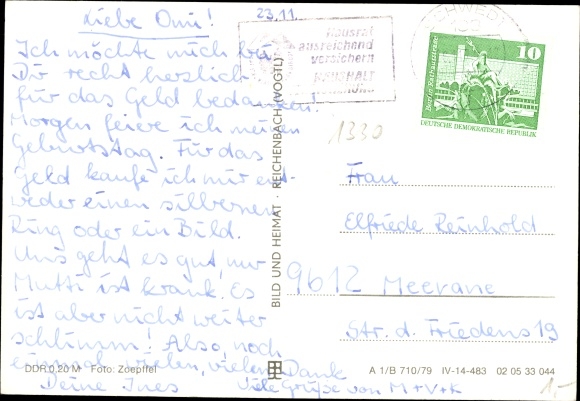 Liebe Omi!
23.11.
Ich möchte mich bei
Dir recht herzlich
für das Geld bedanken.
Morgen feiere ich meinen
Geburtstag. Für das
Geld kaufe ich mir ent-
weder einen silbernen
Ring oder ein Bild.
Uns geht es gut, nur
Mutti ist krank. Es
ist aber nicht weiter
schlimm! Also, noch
einmal vielen, vielen Dank
Deine Ines
Viele Grüße von M+V+K
DDR 0,20 M Foto: Zoepffel
BILD UND HEIMAT · REICHENBACH (VOGTL)
Hausrat
ausreichend
versichern
HAUSHALT
SCHWEDT
10
DEUTSCHE DEMOKRATISCHE REPUBLIK
1330
Frau
Elfriede Reinhold
9612 Meerane
Str. d. Friedens 19
A 1/B 710/79 IV-14-483 02 05 33 044
1,-